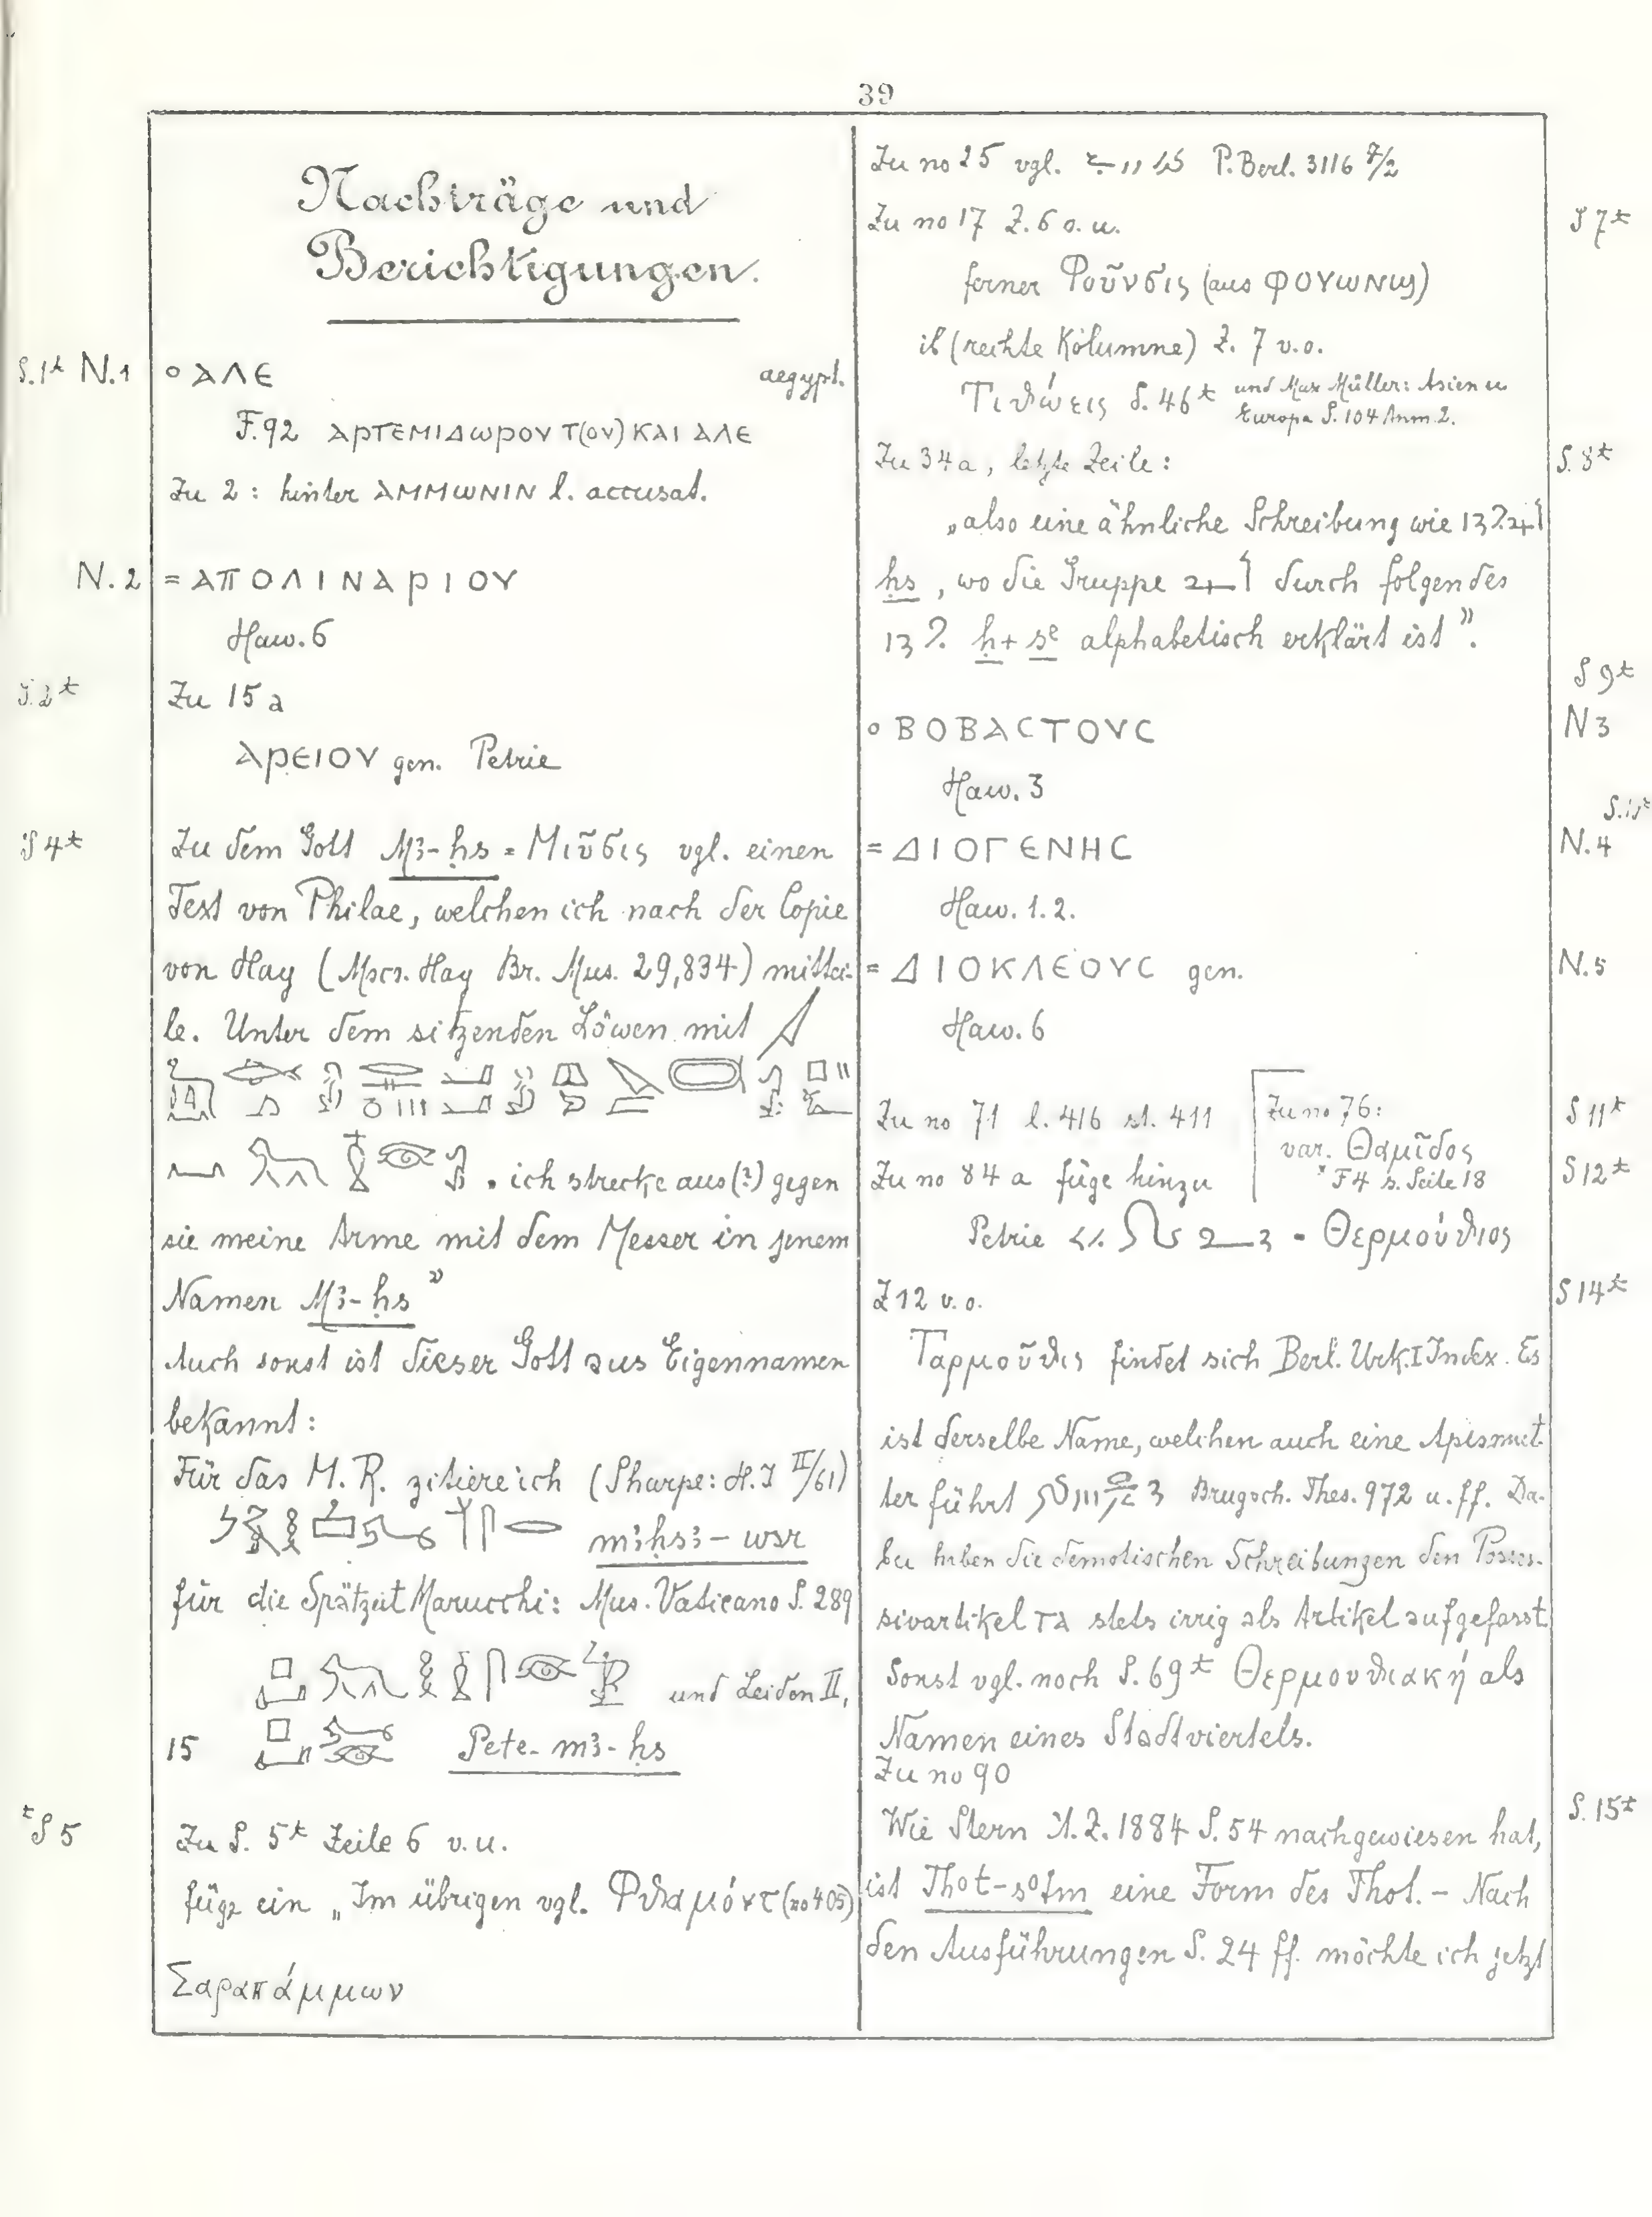 39
Nachträge und
Berichtigungen.
S.1* N.1 ○ ΑΛΕ aegypt.
F.92 ΑΡΤΕΜΙΔΩΡΟΥ Τ(ΟΥ) ΚΑΙ ΑΛΕ
Zu 2: hinter ΑΜΜΩΝΙΝ l. accusat.
N.2 = ΑΠΟΛΙΝΑΡΙΟΥ
Haw. 6
S.2* Zu 15a
ΑΡΕΙΟΥ gen. Petrie
S 4* Zu dem Gott M3-ḥs = Μιῦσις vgl. einen
Text von Philae, welchen ich nach der Copie
von Hay (Mscr. Hay Br. Mus. 29,834) mittei-
le. Unter dem sitzenden Löwen mit
„ich strecke aus(?) gegen
sie meine Arme mit dem Messer in jenem
Namen M3-ḥs"
Auch sonst ist dieser Gott aus Eigennamen
bekannt:
Für das M. R. zitiere ich (Sharpe: H.I II/61)
m3ḥs3 - wsr
für die Spätzeit Marucchi: Mus. Vaticano S. 289
und Leiden II,
15 Pete-m3-ḥs
*S 5 Zu S. 5* Zeile 6 v.u.
füge ein „Im übrigen vgl. (no 405)
Σαραπάμμων
Zu no 25 vgl. P. Berl. 3116 7/2
Zu no 17 Z. 6 o. u. S 7*
ferner Φοῦνσις (aus ΦΟΥΩΝϢ)
ib (rechte Kolumne) Z. 7 v.o.
Τιθώεις S. 46* und Max Müller: Asien u
Europa S. 104 Anm. 2.
Zu 34a, letzte Zeile: S. 8*
„also eine ähnliche Schreibung wie
ḥs, wo die Gruppe durch folgendes
ḥ + se alphabetisch erklärt ist".
S 9*
○ ΒΟΒΑCΤΟΥC N 3
Haw. 3
S. 11*
= ΔΙΟΓΕΝΗC N. 4
Haw. 1. 2.
= ΔΙΟΚΛΕΟΥC gen. N. 5
Haw. 6
Zu no 71 l. 416 st. 411 S 11*
Zu no 76:
var. Θαμῖδος
F4 s. Seite 18
Zu no 84a füge hinzu S 12*
Petrie = Θερμούθιος
Z 12 v. o. S 14*
Ταρμοῦθις findet sich Berl. Urk. I Index. Es
ist derselbe Name, welchen auch eine Apismut-
ter führt Brugsch. Thes. 972 u. ff. Da-
bei haben die demotischen Schreibungen den Posses-
sivartikel ΤΑ stets irrig als Artikel aufgefasst
Sonst vgl. noch S. 69* Θερμουθιακή als
Namen eines Stadtviertels.
Zu no 90
Wie Stern Ä.Z. 1884 S. 54 nachgewiesen hat, S. 15*
ist Thot-sotm eine Form des Thot. – Nach
den Ausführungen S. 24 ff. möchte ich jetzt